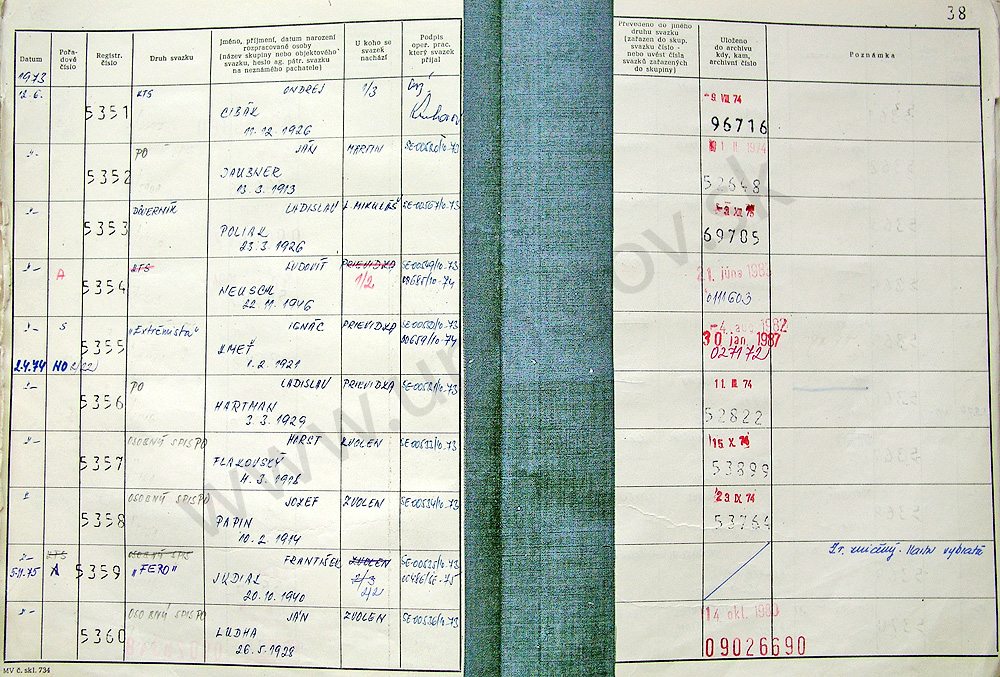 38
Datum
Pořa-
dové
číslo
Registr.
číslo
Druh svazku
Jméno, příjmení, datum narození
rozpracované osoby
(název skupiny nebo objektového
svazku, heslo ag. pátr. svazku
na neznámého pachatele)
U koho se
svazek
nachází
Podpis
oper. prac.
který svazek
přijal
Převedeno do jiného
druhu svazku
(zařazen do skup.
svazku číslo -
nebo uvést čísla
svazků zařazených
do skupiny)
Uloženo
do archivu
kdy, kam,
archivní číslo
Poznámka
1973
12.6.
5351
KTS
ONDREJ
CIBÁK
11.12.1926
1/3
-9. VII 74
96716
5352
PO
JÁN
JAUBNER
13.3.1913
MARTIN
52648
5353
DÔVERNÍK
LADISLAV
POLIAK
23.3.1926
L. MIKULÁŠ
SE-00567/10-73
69705
A
5354
KTS
ĽUDOVÍT
NEUSCHL
22.11.1946
PRIEVIDZA
1/2
SE-00549/10-73
21. júna 198
0111603
S
5355
"Extrémista"
IGNÁC
KMEŤ
1.2.1921
PRIEVIDZA
SE-00550/10-73
00659/10-74
-4. aug 1982
30 jan. 1987
027172
2.4.74
5356
PO
LADISLAV
HARTMAN
3.3.1929
PRIEVIDZA
SE-00531/10-73
11. III 74
52822
5357
OSOBNÝ SPIS PO
HORST
FLAKOVSKÝ
4.3.1918
ZVOLEN
SE-00533/10-73
15 X. 74
53899
5358
OSOBNÝ SPIS PO
JOZEF
PAPIN
10.2.1914
ZVOLEN
SE-00534/10-73
23 IX 74
53764
5.11.75
KTS
A
5359
OSOBNÝ SPIS
"FERO"
FRANTIŠEK
JUDIAK
20.10.1940
ZVOLEN
2/3
2/2
SE-00535/10-73
Zv. zničený. Karta vybratá
5360
OSOBNÝ SPIS PO
JÁN
LUDHA
26.5.1928
ZVOLEN
SE-00536/10-73
14. okt. 1980
09026690
MV č. skl. 734